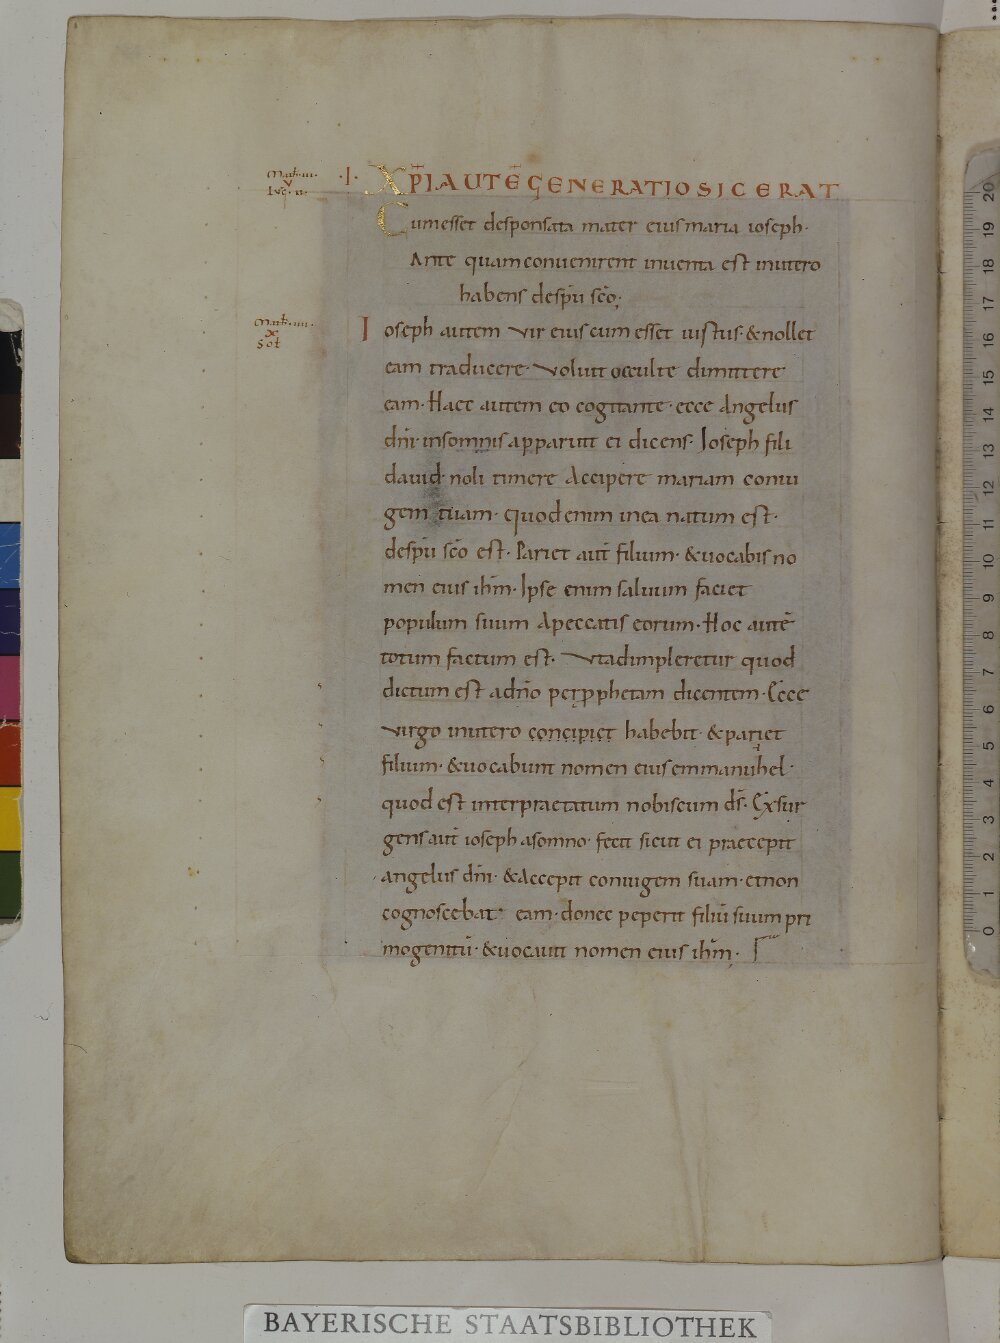 Math. III.
V
Luc. II.
·I· XP̄I AUTĒ GENERATIO SIC ERAT
Cum esset desponsata mater eius maria ioseph·
Ante quam convenirent inventa est inutero
habens despū sc̄o;
Math. IIII.
X
Sol̄
Ioseph autem vir eius cum esset iustus· & nollet
eam traducere· voluit occulte dimittere
eam· Haec autem eo cogitante· ecce Angelus
dn̄i· insomnis apparuit ei dicens· Ioseph fili
david· noli timere Accipere mariam coniu
gem tuam· quod enim inea natum est·
despū sc̄o est· Pariet aut̄ filium· & uocabis no
men eius ih̄m· Ipse enim saluum faciet
populum suum Apeccatis eorum· Hoc autē
totum factum est· vtadimpleretur quod
dictum est adn̄o per pphetam dicentem· Ecce
virgo inutero concipiet habebit· & pariet
filium· & uocabunt nomen eius emmanuhel·
quod est interpraetatum nobiscum ds̄· Exsur
gens aut̄ ioseph asomno· fecit sicut ei praecepit
angelus dn̄i· & Accepit coniugem suam· etnon
cognoscebat· eam· donec peperit filiū suum pri
mogenitū· & uocauit nomen eius ih̄m·
0 1 2 3 4 5 6 7 8 9 10 11 12 13 14 15 16 17 18 19 20
BAYERISCHE STAATSBIBLIOTHEK